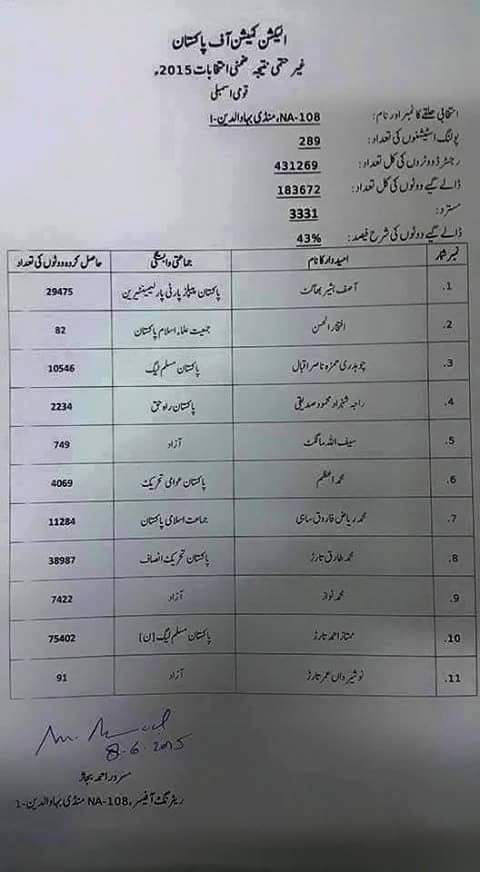 الیکشن کمیشن آف پاکستان
غیر حتمی نتیجہ ضمنی انتخابات 2015ء
قومی اسمبلی
انتخابی حلقے کا نمبر اور نام: NA-108، منڈی بہاوالدین-I
پولنگ اسٹیشنوں کی تعداد: 289
رجسٹرڈ ووٹروں کی کل تعداد: 431269
ڈالے گیے ووٹوں کی کل تعداد: 183672
مسترد: 3331
ڈالے گیے ووٹوں کی شرح فیصد: 43%
نمبر شمار امیدوار کا نام جماعتی وابستگی حاصل کردہ ووٹوں کی تعداد
1. آصف بشیر بھاگٹ پاکستان پیپلز پارٹی پارلیمینٹیرین 29475
2. افتخار الحسن جمعیت علماء اسلام پاکستان 82
3. چوہدری حمزہ ناصر اقبال پاکستان مسلم لیگ 10546
4. راجہ شہزاد محمود صدیقی پاکستان راہ حق 2234
5. سیف اللہ سانگٹ آزاد 749
6. محمد اعظم پاکستان عوامی تحریک 4069
7. محمد ریاض فاروق ساہی جماعت اسلامی پاکستان 11284
8. محمد طارق تارڑ پاکستان تحریک انصاف 38987
9. محمد نواز آزاد 7422
10. ممتاز احمد تارڑ پاکستان مسلم لیگ (ن) 75402
11. نوشیرواں عمر تارڑ آزاد 91
8-6-2015
سرور احمد
ریٹرننگ آفیسر، NA-108 منڈی بہاوالدین-1